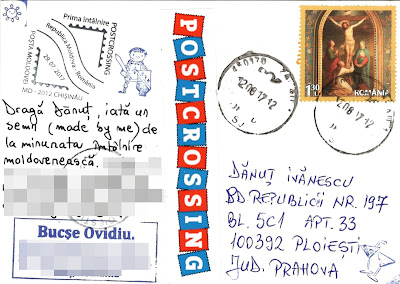 Prima întâlnire
POSTCROSSING
Republica Moldova - România
POȘTA MOLDOVEI
29.07.2017
MD - 2012 CHIȘINĂU
Dragă Dănuț, iată un
semn (made by me) de
la minunata întâlnire
moldovenească.
Bucșe Ovidiu.
POSTCROSSING
1,30
ROMÂNIA
12.08.17.12
12.08.17.12
DĂNUȚ IVĂNESCU
BD. REPUBLICII NR. 197
BL. 5C1 APT. 33
100392 PLOIEȘTI
JUD. PRAHOVA